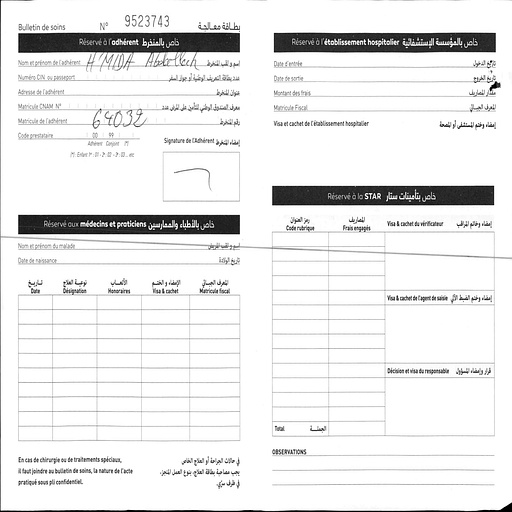 Bulletin de soins N° 9523743 بطاقة معالجة
Réservé à l'adhérent خاص بالمنخرط
Nom et prénom de l'adhérent H'MIDA Abdellah إسم و لقب المنخرط
Numéro CIN ou passeport عدد بطاقة التعريف الوطنية أو جواز السفر
Adresse de l'adhérent عنوان المنخرط
Matricule CNAM N° معرف الصندوق الوطني للتأمين على المرض عدد
Matricule de l'adhérent 64032 رقم المنخرط
Code prestataire 00 99
Adhérent Conjoint (*)
(*): Enfant 1er : 01 - 2: 02 - 3: 03 ... etc
Signature de l'Adhérent إمضاء المنخرط
Réservé aux médecins et praticiens خاص بالأطباء والممارسين
Nom et prénom du malade إسم و لقب المريض
Date de naissance تاريخ الولادة
تاريخ نوعية العلاج الأتعاب الإمضاء و الختم المعرف الجبائي
Date Désignation Honoraires Visa & cachet Matricule fiscal
En cas de chirurgie ou de traitements spéciaux, في حالات الجراحة أو العلاج الخاص
il faut joindre au bulletin de soins, la nature de l'acte يجب مصاحبة بطاقة العلاج، بنوع العمل المنجز،
pratiqué sous pli confidentiel. في ظرف سري.
Réservé à l'établissement hospitalier خاص بالمؤسسة الإستشفائية
Date d'entrée تاريخ الدخول
Date de sortie تاريخ الخروج
Montant des frais مقدار المصاريف
Matricule Fiscal المعرف الجبائي
Visa et cachet de l'établissement hospitalier إمضاء وختم المستشفى أو المصحة
Réservé à la STAR خاص بتأمينات ستار
رمز العنوان المصاريف
Code rubrique Frais engagés
Visa & cachet du vérificateur إمضاء وخاتم المراقب
Visa & cachet de l'agent de saisie إمضاء وختم الضبط الآلي
Décision et visa du responsable قرار وإمضاء المسؤول
Total الجملة
OBSERVATIONS